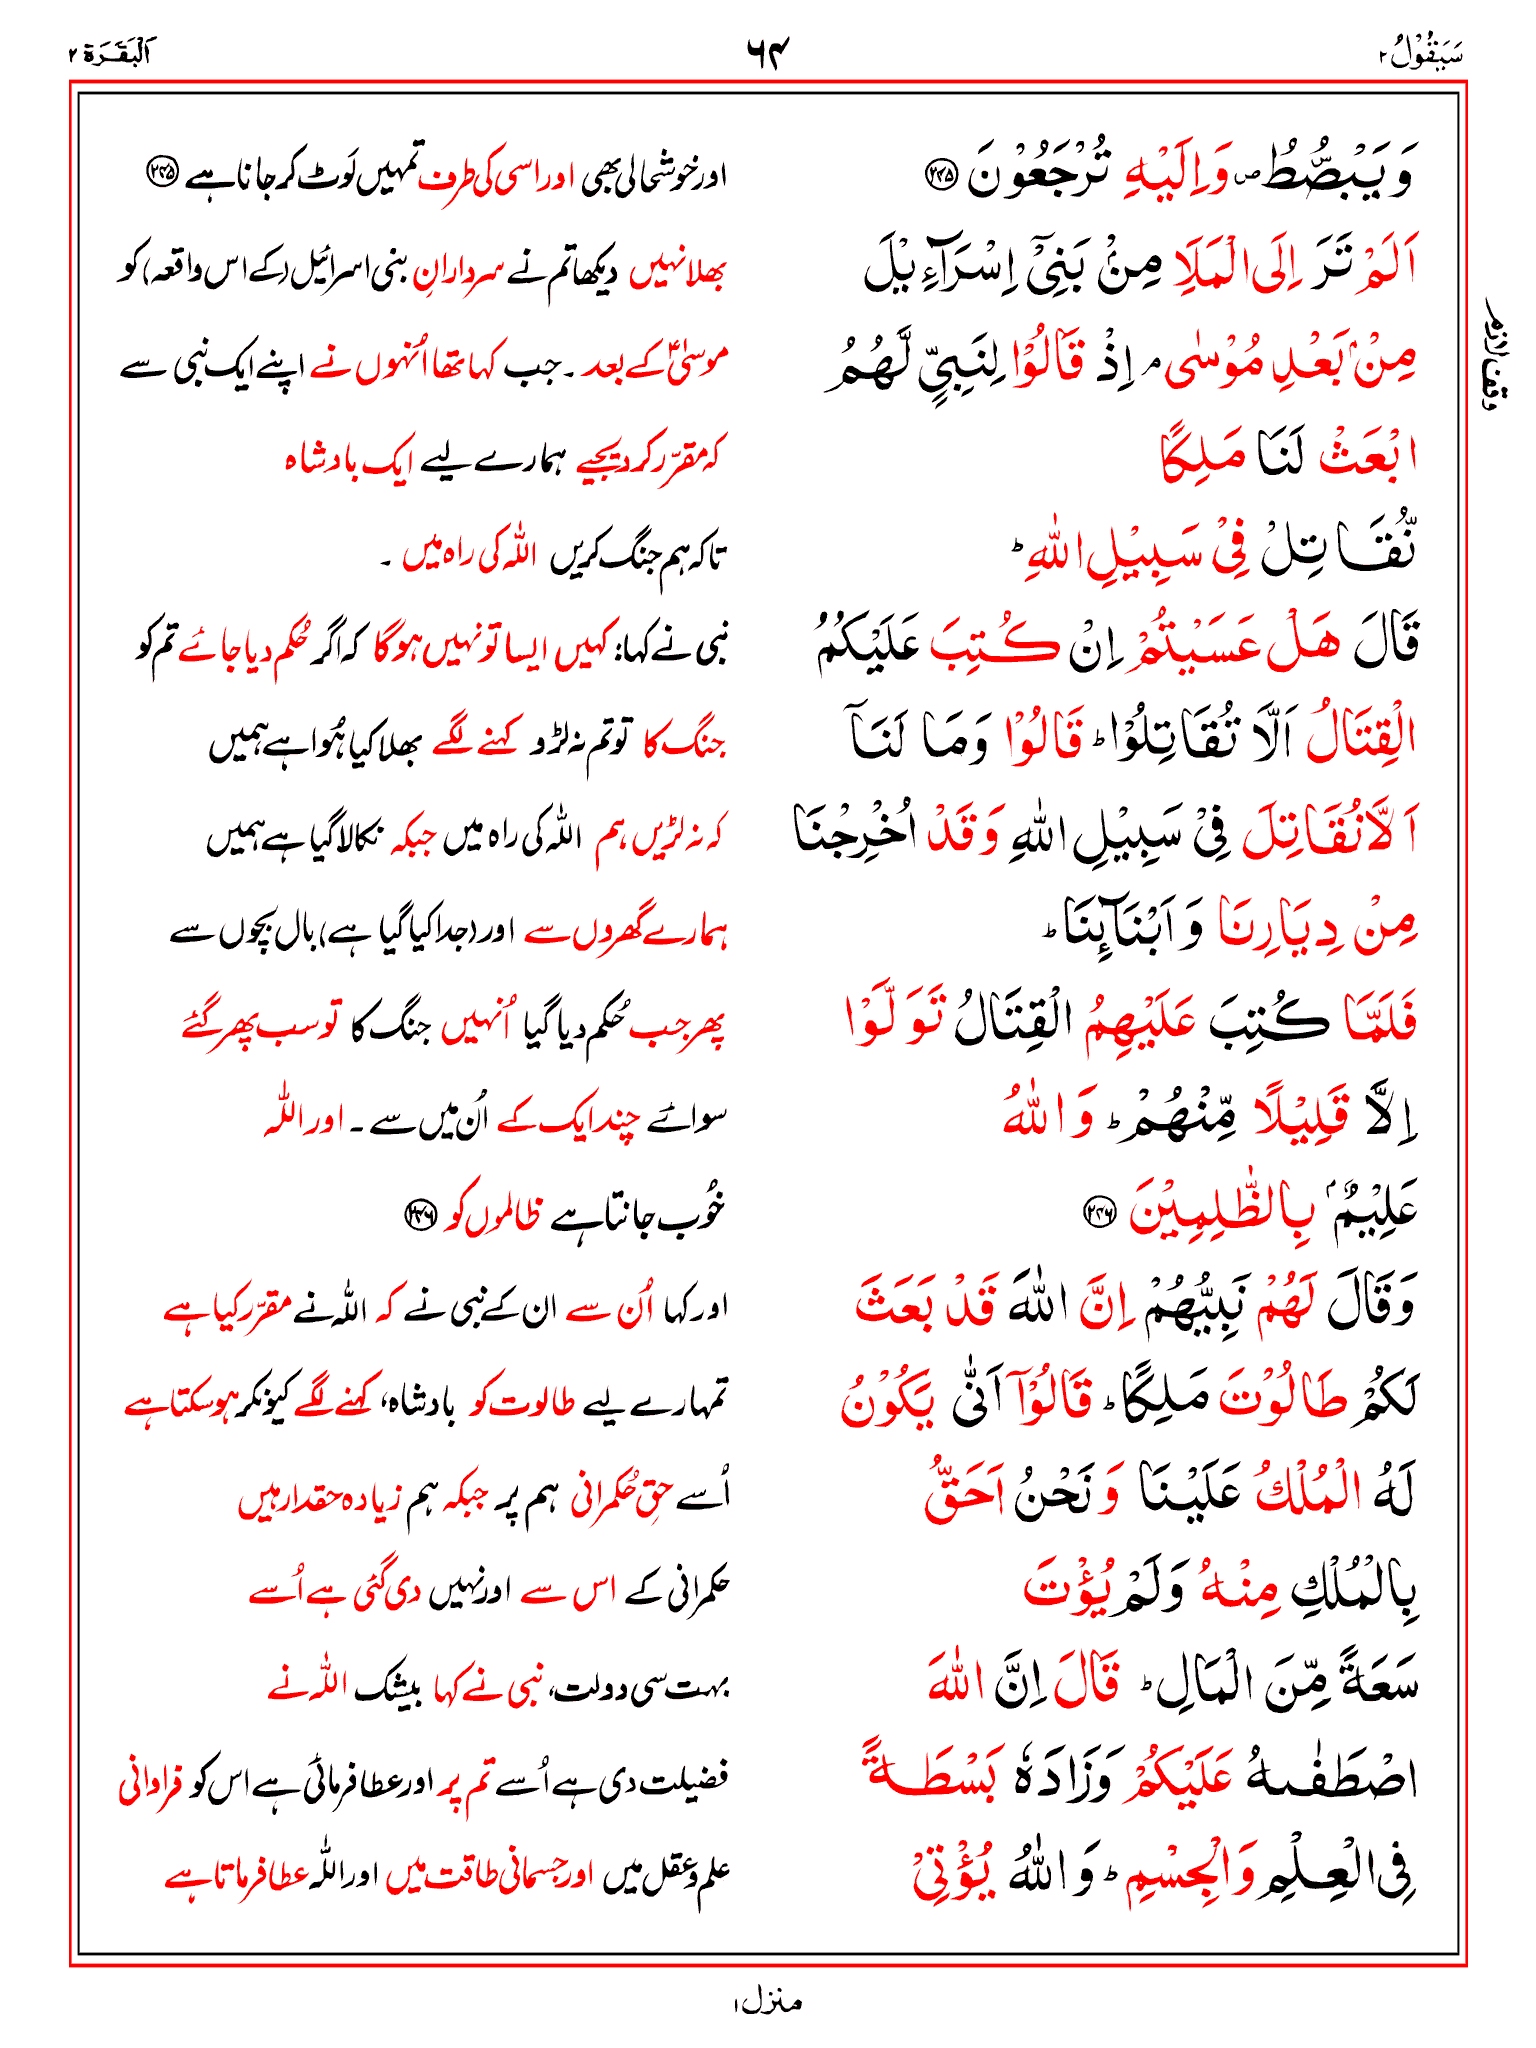 سَيَقُوْلُ ٢
٦٤
اَلْبَقَرَة ٢
وَيَبْصُّطُ ۪ص وَاِلَيْهِ تُرْجَعُوْنَ ﴿٢٤٥﴾ اور خوشحالی بھی اور اسی کی طرف تمہیں لَوٹ کر جانا ہے ﴿٢٤٥﴾
اَلَمْ تَرَ اِلَى الْمَلَاِ مِنْۢ بَنِيْٓ اِسْرَآءِيْلَ بھلا نہیں دیکھا تم نے سردارانِ بنی اسرائیل (کے اس واقعہ) کو
مِنْۢ بَعْدِ مُوْسٰى ۘ اِذْ قَالُوْا لِنَبِيٍّ لَّهُمُ موسیٰؑ کے بعد ۔ جب کہا تھا اُنہوں نے اپنے ایک نبی سے
ابْعَثْ لَنَا مَلِكًا کہ مقرّر کر دیجیے ہمارے لیے ایک بادشاہ
نُّقَاتِلْ فِيْ سَبِيْلِ اللّٰهِ ؕ تاکہ ہم جنگ کریں اللّٰہ کی راہ میں ۔
قَالَ هَلْ عَسَيْتُمْ اِنْ كُتِبَ عَلَيْكُمُ نبی نے کہا: کہیں ایسا تو نہیں ہوگا کہ اگر حُکم دیا جائے تم کو
الْقِتَالُ اَلَّا تُقَاتِلُوْا ؕ قَالُوْا وَمَا لَنَآ جنگ کا تو تم نہ لڑو کہنے لگے بھلا کیا ہُوا ہے ہمیں
اَلَّا نُقَاتِلَ فِيْ سَبِيْلِ اللّٰهِ وَقَدْ اُخْرِجْنَا کہ نہ لڑیں ہم اللّٰہ کی راہ میں جبکہ نکالا گیا ہے ہمیں
مِنْ دِيَارِنَا وَاَبْنَآئِنَا ؕ ہمارے گھروں سے اور (جدا کیا گیا ہے) بال بچّوں سے
فَلَمَّا كُتِبَ عَلَيْهِمُ الْقِتَالُ تَوَلَّوْا پھر جب حُکم دیا گیا اُنہیں جنگ کا تو سب پھر گئے
اِلَّا قَلِيْلًا مِّنْهُمْ ؕ وَاللّٰهُ سوائے چند ایک کے اُن میں سے ۔ اور اللّٰہ
عَلِيْمٌۢ بِالظّٰلِمِيْنَ ﴿٢٤٦﴾ خُوب جانتا ہے ظالموں کو ﴿٢٤٦﴾
وَقَالَ لَهُمْ نَبِيُّهُمْ اِنَّ اللّٰهَ قَدْ بَعَثَ اور کہا اُن سے ان کے نبی نے کہ اللّٰہ نے مقرّر کیا ہے
لَكُمْ طَالُوْتَ مَلِكًا ؕ قَالُوْٓا اَنّٰى يَكُوْنُ تمہارے لیے طالوت کو بادشاہ، کہنے لگے کیونکر ہو سکتا ہے
لَهُ الْمُلْكُ عَلَيْنَا وَنَحْنُ اَحَقُّ اُسے حقِ حُکمرانی ہم پر جبکہ ہم زیادہ حقدار ہیں
بِالْمُلْكِ مِنْهُ وَلَمْ يُؤْتَ حکمرانی کے اس سے اور نہیں دی گئی ہے اُسے
سَعَةً مِّنَ الْمَالِ ؕ قَالَ اِنَّ اللّٰهَ بہت سی دولت، نبی نے کہا بیشک اللّٰہ نے
اصْطَفٰىهُ عَلَيْكُمْ وَزَادَهٗ بَسْطَةً فضیلت دی ہے اُسے تم پر اور عطا فرمائی ہے اس کو فراوانی
فِي الْعِلْمِ وَالْجِسْمِ ؕ وَاللّٰهُ يُؤْتِيْ علم و عقل میں اور جسمانی طاقت میں اور اللّٰہ عطا فرماتا ہے
وقف لازم
منزل ١